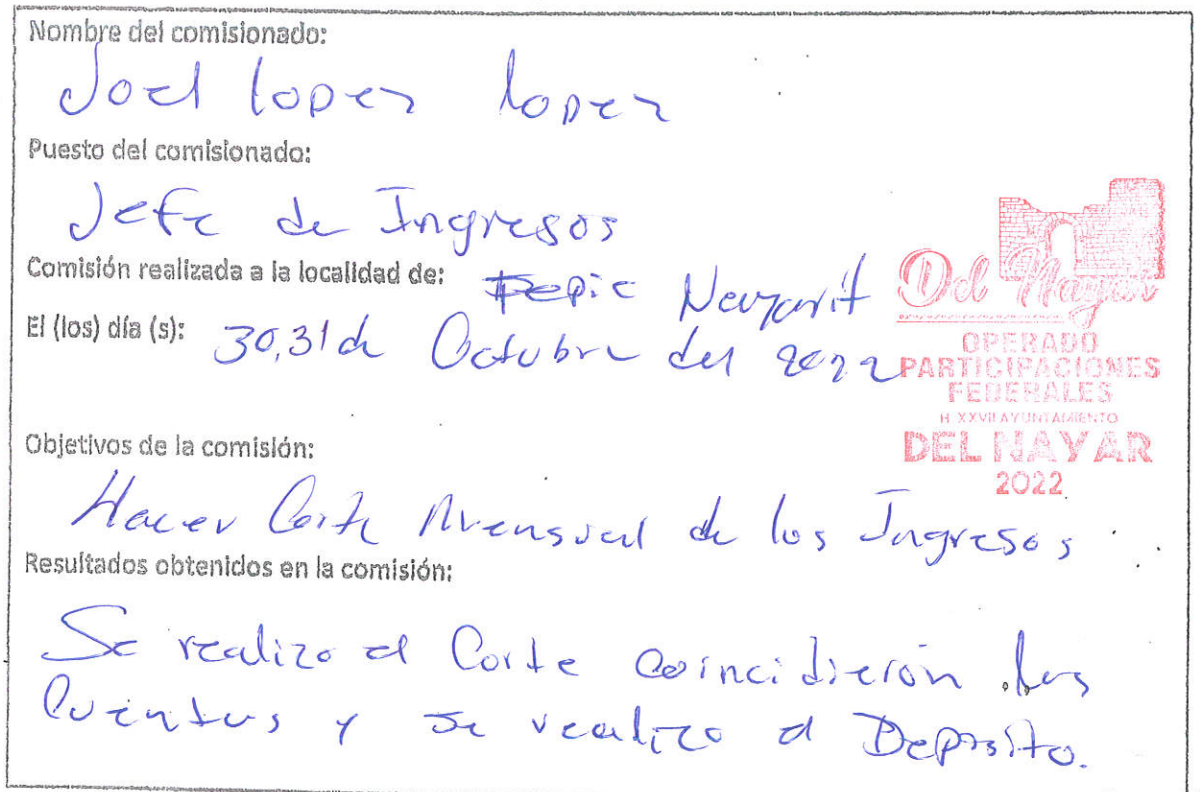 Nombre del comisionado:
Joel lopez lopez
Puesto del comisionado:
Jefe de Ingresos
Comisión realizada a la localidad de: Tepic Nayarit
El (los) día (s): 30,31 de Octubre del 2022
Del Nayar
OPERADO
PARTICIPACIONES
FEDERALES
H. XXVII AYUNTAMIENTO
DEL NAYAR
2022
Objetivos de la comisión:
Hacer Corte Mensual de los Ingresos
Resultados obtenidos en la comisión:
Se realizo el Corte coincidierón las
Cuentas y se realizo el Deposito.